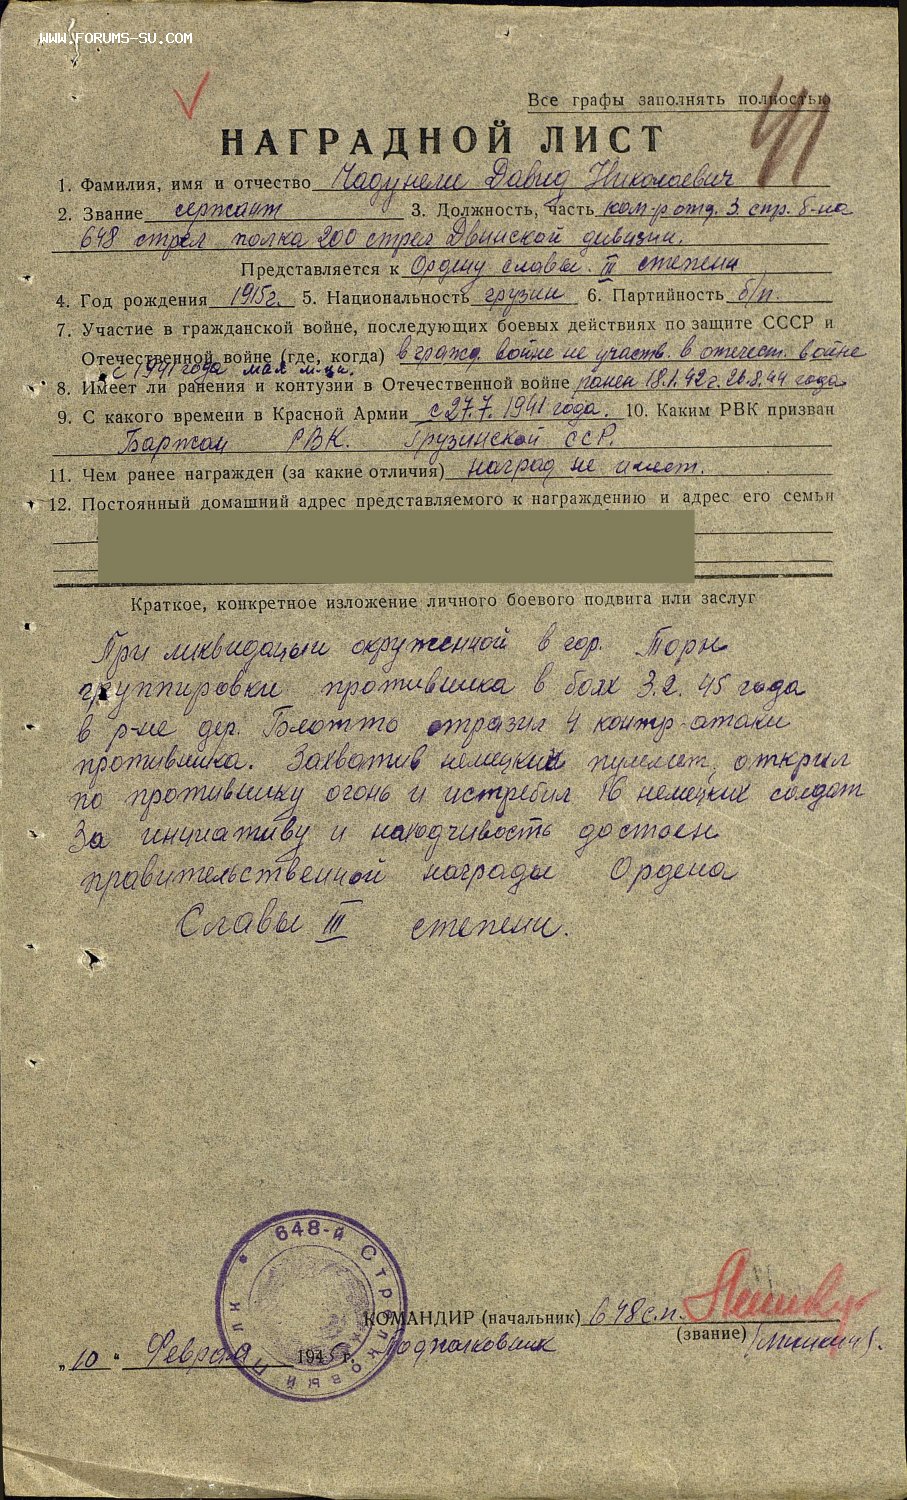 WWW.FORUMS-SU.COM
Все графы заполнять полностью
41
НАГРАДНОЙ ЛИСТ
1. Фамилия, имя и отчество Чадунели Давид Николаевич
2. Звание сержант 3. Должность, часть ком-р отд. 3. стр. б-на
648 стрел полка 200 стрел Двинской дивизии.
Представляется к Ордену славы III степени
4. Год рождения 1915г. 5. Национальность грузин 6. Партийность б/п.
7. Участие в гражданской войне, последующих боевых действиях по защите СССР и
Отечественной войне (где, когда) в гражд. войне не участв. в отечест. войне
с 1941 года мая м-ца.
8. Имеет ли ранения и контузии в Отечественной войне ранен 18.1.42г. 26.8.44 года
9. С какого времени в Красной Армии с 27.7.1941 года. 10. Каким РВК призван
Боржом РВК. Грузинской ССР.
11. Чем ранее награжден (за какие отличия) наград не имеет.
12. Постоянный домашний адрес представляемого к награждению и адрес его семьи
Краткое, конкретное изложение личного боевого подвига или заслуг
При ликвидации окруженной в гор. Торн
группировки противника в боях 3.2.45 года
в р-не дер. Блотто отразил 4 контр-атаки
противника. Захватив немецкий пулемет, открыл
по противнику огонь и истребил 16 немецких солдат
За инициативу и находчивость достоен
правительственной награды Ордена
Славы III степени.
648-й Стрелковый Полк
КОМАНДИР (начальник) 648 с.п.
(звание)
Подполковник
„10“ Февраля 1945 г.